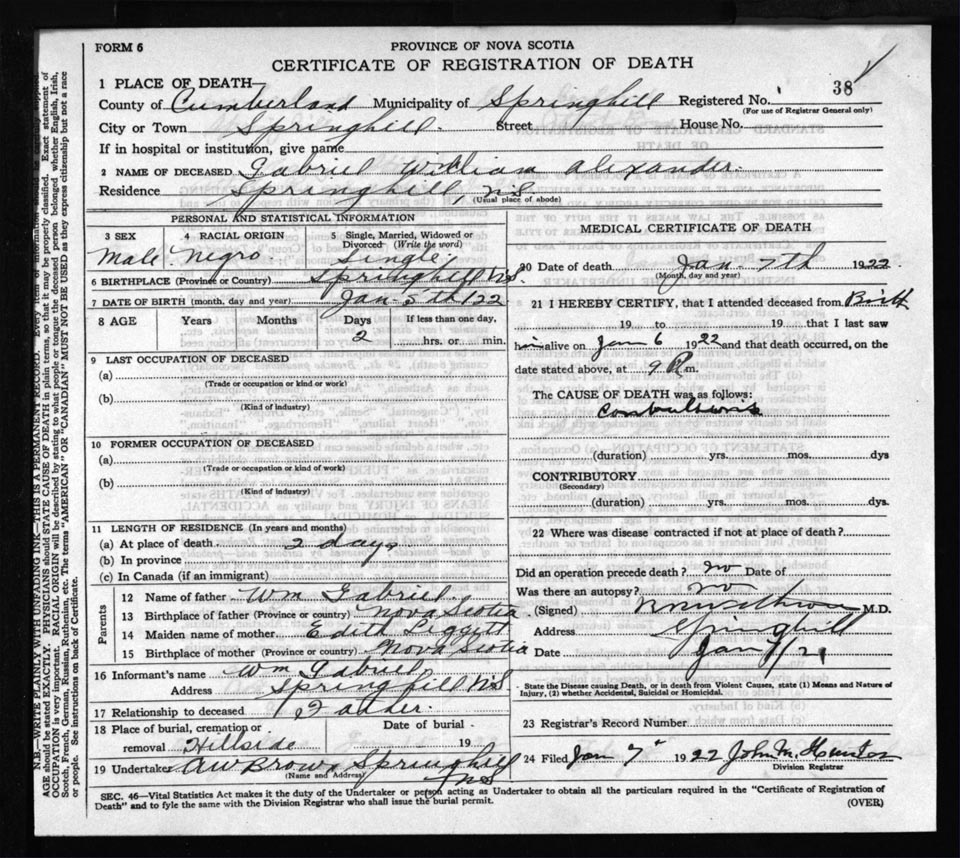 FORM 6
PROVINCE OF NOVA SCOTIA
CERTIFICATE OF REGISTRATION OF DEATH
1 PLACE OF DEATH—
County of Cumberland Municipality of Springhill Registered No. 38
(For use of Registrar General only)
City or Town Springhill. Street House No.
If in hospital or institution, give name
2 NAME OF DECEASED Gabriel William Alexander.
Residence Springhill, NS
(Usual place of abode)
PERSONAL AND STATISTICAL INFORMATION
3 SEX 4 RACIAL ORIGIN 5 Single, Married, Widowed or Divorced (Write the word)
Male. Negro. Single
6 BIRTHPLACE (Province or Country) Springhill NS.
7 DATE OF BIRTH (month, day and year) Jan-5th/22
8 AGE Years Months Days If less than one day,
2 hrs. or min.
9 LAST OCCUPATION OF DECEASED
(a)
(Trade or occupation or kind or work)
(b)
(Kind of industry)
10 FORMER OCCUPATION OF DECEASED
(a)
(Trade or occupation or kind or work)
(b)
(Kind of industry)
11 LENGTH OF RESIDENCE (In years and months)
(a) At place of death 2 days
(b) In province
(c) In Canada (if an immigrant)
Parents
12 Name of father Wm Gabriel.
13 Birthplace of father (Province or country) Nova Scotia
14 Maiden name of mother. Edith
15 Birthplace of mother (Province or country) Nova Scotia
16 Informant's name Wm Gabriel.
Address Spring fill NS
17 Relationship to deceased Father.
18 Place of burial, cremation or removal Hillside
Date of burial 19
19 Undertaker AW Brown Springhill NS
(Name and Address)
MEDICAL CERTIFICATE OF DEATH
20 Date of death Jan-7th 1922
(Month, day and year)
21 I HEREBY CERTIFY, that I attended deceased from Birth
19 to 19 that I last saw
him alive on Jan 6 1922 and that death occurred, on the
date stated above, at 9 P m.
The CAUSE OF DEATH was as follows:
Convulsions
(duration) yrs. mos. dys
CONTRIBUTORY
(Secondary)
(duration) yrs. mos. dys.
22 Where was disease contracted if not at place of death?
Did an operation precede death? no Date of
Was there an autopsy? no
(Signed) M.D.
Address Springhill
Date Jan
State the Disease causing Death, or in death from Violent Causes, state (1) Means and Nature of
Injury, (2) whether Accidental, Suicidal or Homicidal.
23 Registrar's Record Number
24 Filed Jan 7" 1922 John M. Hunter
Division Registrar
SEC. 46—Vital Statistics Act makes it the duty of the Undertaker or person acting as Undertaker to obtain all the particulars required in the "Certificate of Registration of
Death" and to fyle the same with the Division Registrar who shall issue the burial permit.
(OVER)
N.B.—WRITE PLAINLY WITH UNFADING INK—THIS IS A PERMANENT RECORD. Every item of information
AGE should be stated EXACTLY. PHYSICIANS should STATE CAUSE OF DEATH in plain terms, so that it may be properly classified. Exact statement of
OCCUPATION is very important. RACIAL ORIGIN will be described by stating to what people or tongue the deceased person belonged whether English, Irish,
Scotch, French, German, Russian, Ruthenian, etc. The terms "AMERICAN" OR "CANADIAN" MUST NOT BE USED as they express citizenship but not a race
or people. See instructions on back of Certificate.